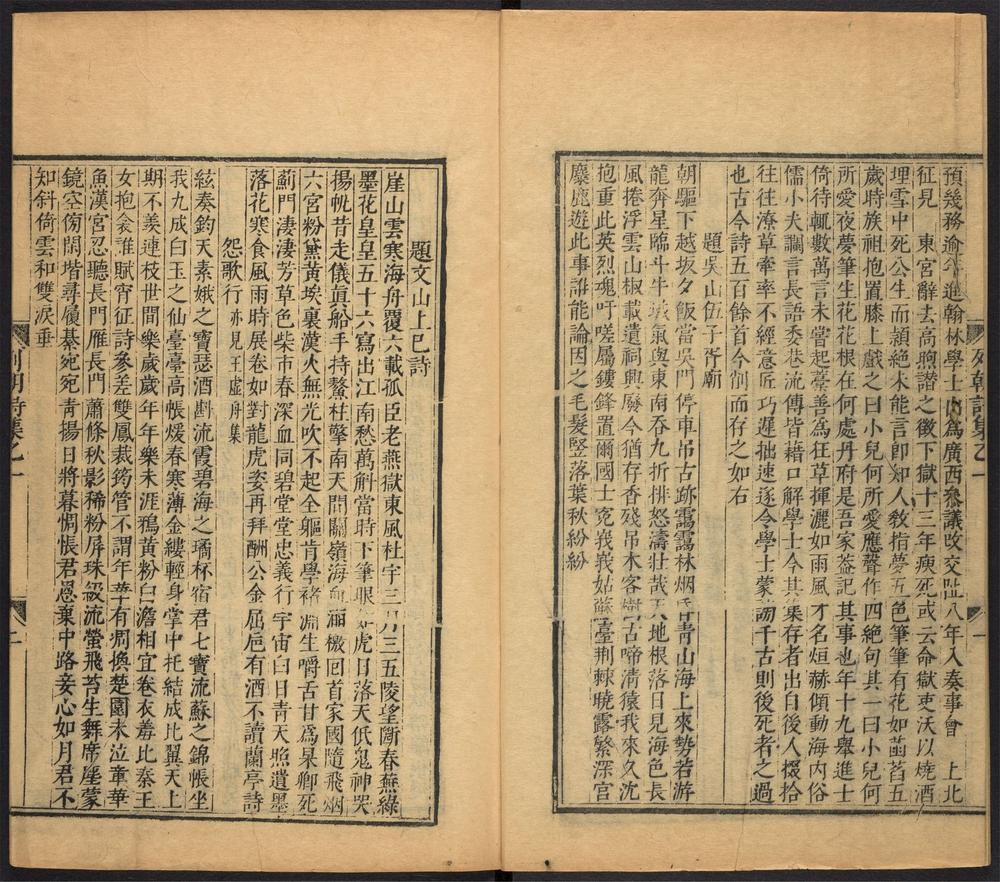 預幾務逾年進翰林學士內為廣西叅議改交趾八年入奏事會　上北
征見　東宮辭去高煦譖之徵下獄十三年瘐死或云命獄吏沃以燒酒
埋雪中死公生而頴絕未能言卽知人敎指夢五色筆筆有花如菡萏五
歲時族祖抱置膝上戲之曰小兒何所愛應聲作四絕句其一曰小兒何
所愛愛夜夢筆生花花根在何處丹府是吾家葢記其事也年十九舉進士
倚待輒數萬言未嘗起藁善為狂草揮灑如雨風才名烜赫傾動海内俗
儒小夫讕言長語委巷流傳皆藉口解學士今其集存者出自後人掇拾
往往潦草牽率不經意匠巧遲拙速遂令學士蒙謗千古則後死者之過
也古今詩五百餘首今削而存之如右
題吳山伍子胥廟
朝驅下越坂夕飯當吳門停車吊古跡靄靄林烟昏青山海上來勢若游
龍奔星臨斗牛域氣與東南吞九折排怒濤壯哉天地根落日見海色長
風捲浮雲山椒載遺祠興廢今猶存香殘吊木客樹古啼清猿我來久沈
抱重此英烈魂吁嗟屬鏤鋒置爾國士寃峩峩姑蘇臺荆棘曉露繁深宮
麋鹿遊此事誰能論因之毛髮竪落葉秋紛紛
列朝詩集乙一
一
題文山上巳詩
崖山雲寒海舟覆六載孤臣老燕獄東風杜宇三月三五陵望斷春蕪綠
墨花皇皇五十六寫出江南愁萬斛當時下筆眼如虎日落天低鬼神哭
揚帆昔走儀眞船手持鰲柱擎南天間關嶺海血洒檄囘首家國隨飛烟
六宮粉黛黃埃裏漢火無光吹不起全軀肯學褚淵生嚼舌甘為杲卿死
薊門淒淒芳草色柴市春深血同碧堂堂忠義行宇宙白日青天照遺墨
落花寒食風雨時展卷如對龍虎姿再拜酬公金屈巵有酒不讀蘭亭詩
怨歌行亦見王虛舟集
絃奏鈞天素娥之寶瑟酒斟流霞碧海之璚杯宿君七寶流蘇之錦帳坐
我九成白玉之仙臺臺高帳煖春寒薄金縷輕身掌中托結成比翼天上
期不羨連枝世間樂歲歲年年樂未涯鴉黃粉白澹相宜卷衣羞比秦王
女抱衾誰賦宵征詩參差雙鳳裁筠管不謂年華有凋換楚園未泣章華
魚漢宮忍聽長門雁長門蕭條秋影稀粉屏珠級流螢飛苔生舞席塵蒙
鏡空傍閑堦尋履綦宛宛青揚日將暮惆悵君恩棄中路妾心如月君不
知斜倚雲和雙淚垂
列朝詩集乙一
二